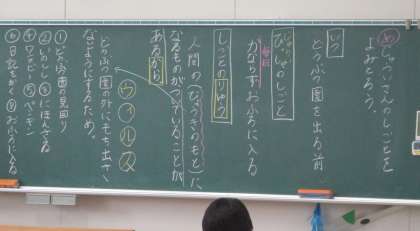 めじゅういさんのしごとを
よみとろう。
いつ
どうぶつ園を出る前
のしごと
毎日
かならずおふろに入る
しごとのりゆう
人間の(びょうきのもと)に
なるものがついていることが
あるから
ウイルス
どうぶつ園の外にもち出さ
ないようにするため。
①どうぶつ園の見回り
②いのしし ③にほんざる
④ワラビー ⑤ペンギン
⑥日記をかく ⑦おふろに入る